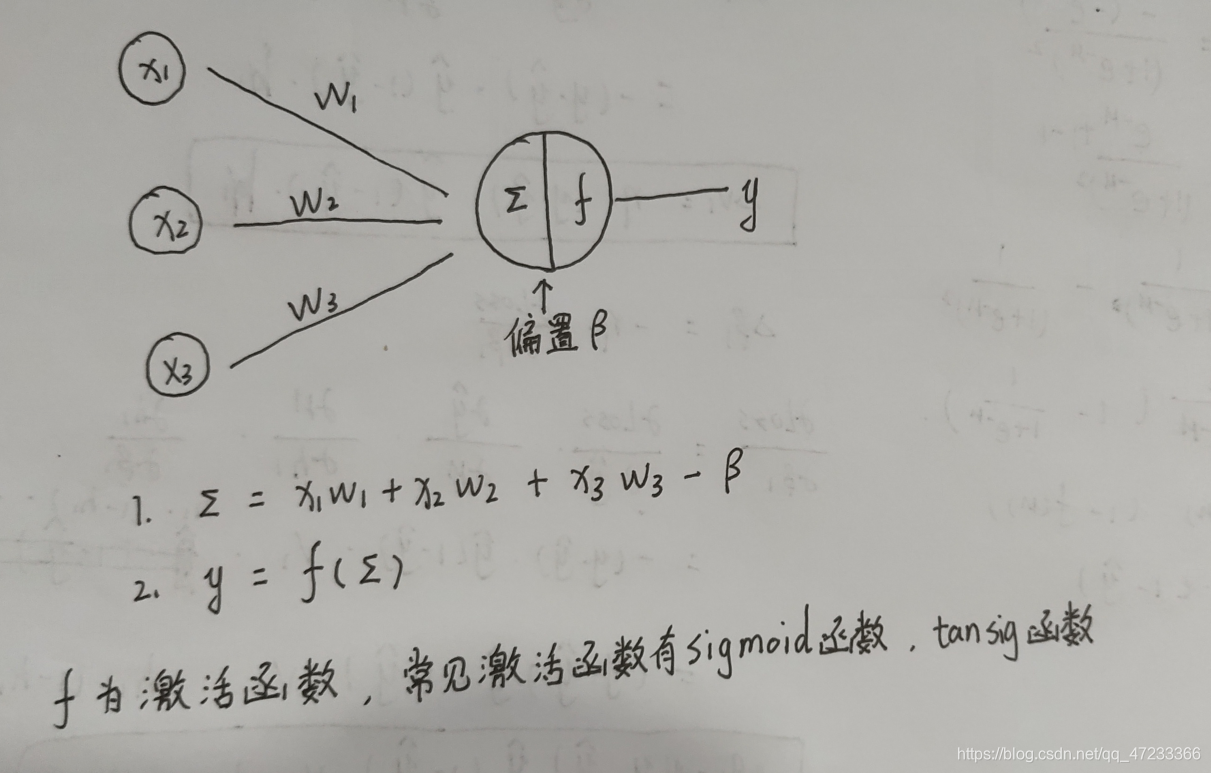 x₁
W₁
x₂
W₂
Σ f
y
W₃
x₃
↑
偏置 β
1. Σ = x₁w₁ + x₂w₂ + x₃w₃ - β
2. y = f(Σ)
f 为激活函数，常见激活函数有sigmoid函数，tansig函数
https://blog.csdn.net/qq_47233366